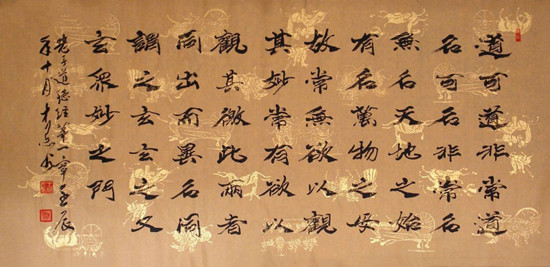 道可道非常道
名可名非常名
無名天地之始
有名萬物之母
故常無欲以觀
其妙常有欲以
觀其徼此兩者
同出而異名同
謂之玄玄之又
玄眾妙之門
老子道德經第一章壬辰
年十月